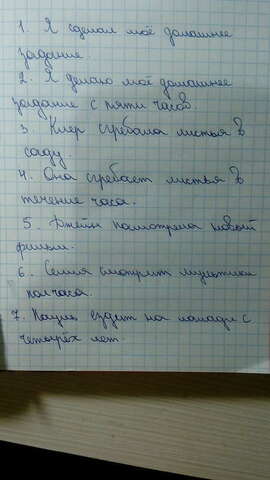 1. Я сделал моё домашнее
задание.
2. Я делаю моё домашнее
задание с пяти часов.
3. Клер сгребала листья в
саду.
4. Она сгребает листья в
течение часа.
5. Джейн посмотрела новый
фильм.
6. Семья смотрит мультики
полчаса.
7. Пауль ездит на лошади с
четырёх лет